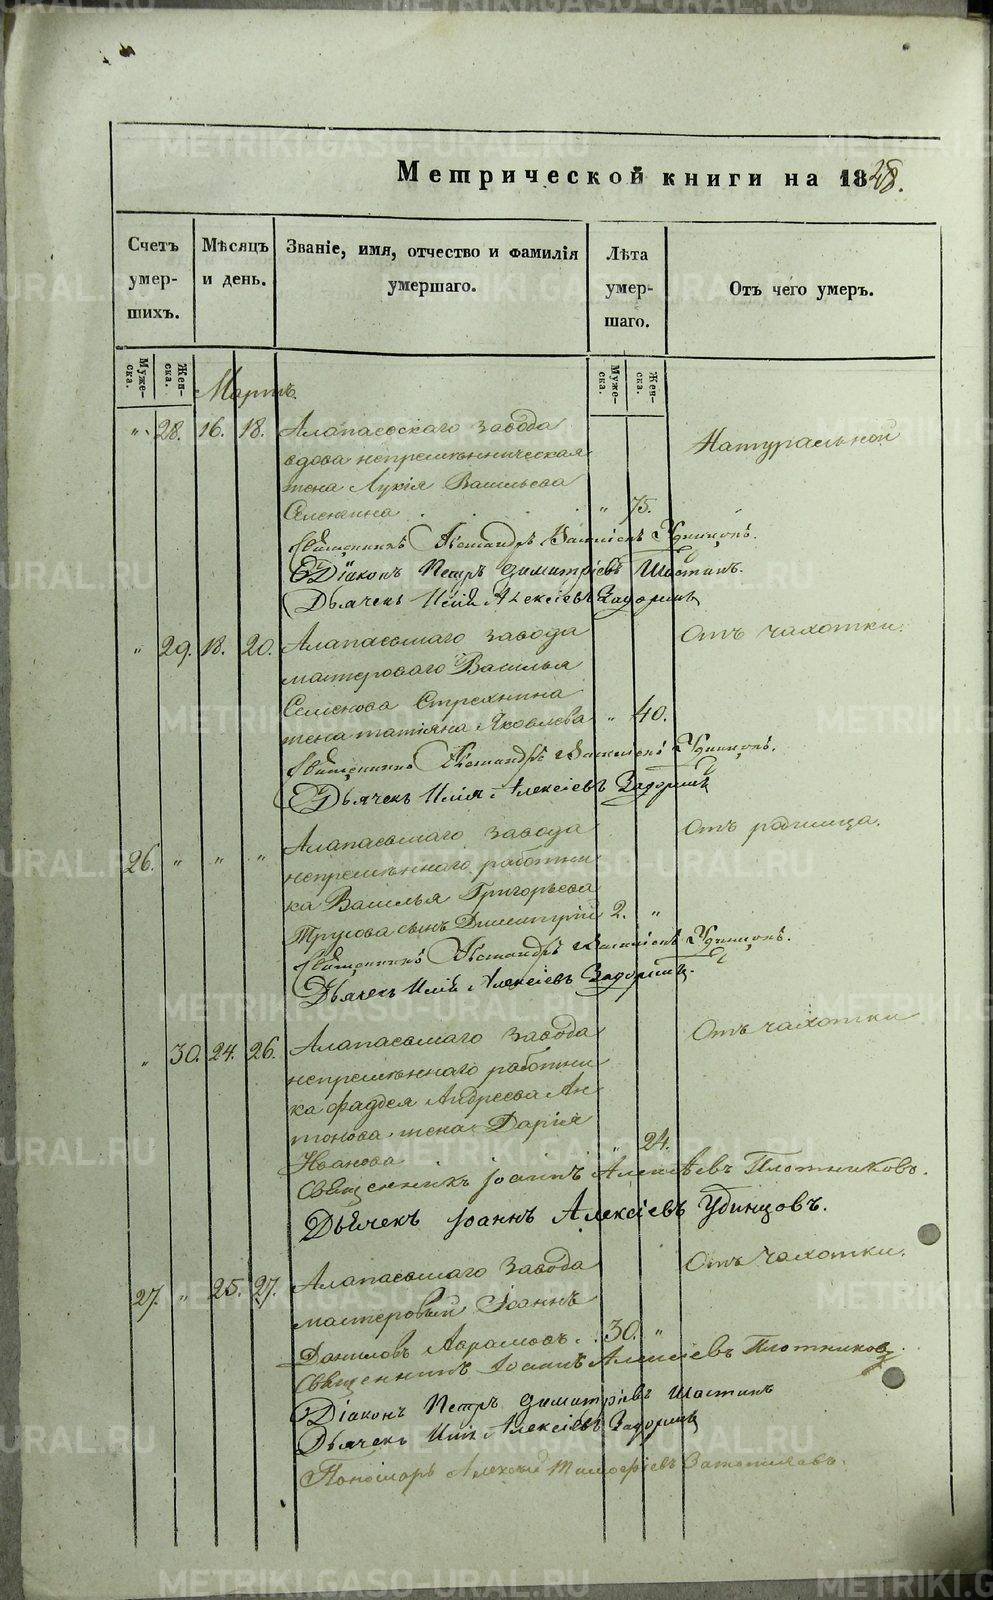 Метрической книги на 1828.
Счетъ умершихъ.
Мѣсяцъ и день.
Званіе, имя, отчество и фамилія умершаго.
Лѣта умершаго.
Отъ чего умеръ.
Мужеска.
Женска.
Мужеска.
Женска.
Мартъ.
" 28. 16. 18. Алапаевскаго завода Натуральной
вдова непремѣнническая
жена Лукія Васильева
" 75.
Священникъ Васильевъ Удинцовъ.
Діаконъ Петръ Димитріевъ Шастинъ.
Дьячекъ Илія Алексіевъ Задоринъ
" 29. 18. 20. Алапаевскаго завода Отъ чахотки.
мастероваго Василья
Семенова Стрехнина
жена Татіяна Яковлева " 40.
Священникъ Васильевъ Удинцовъ.
Дьячекъ Илія Алексіевъ Задоринъ
26. " " " Алапаевскаго завода Отъ родимца.
непремѣннаго работни
ка Василья Григорьева
Трусова сынъ Димитрій 2. "
Священникъ Васильевъ Удинцовъ.
Дьячекъ Илій Алексіевъ Задоринъ.
" 30. 24. 26. Алапаевскаго завода Отъ чахотки
непремѣннаго работни
ка Фаддея Андреева Ан
тонова жена Дарія
Иванова " 24.
Священникъ Іоаннъ Алексѣевъ Плотниковъ.
Дьячекъ Іоаннъ Алексіевъ Удинцовъ.
27. " 25. 27. Алапаевскаго завода Отъ чахотки.
мастеровый Іоаннъ
Даниловъ Аврамовъ. 30. "
Священникъ Іоаннъ Алексіевъ Плотниковъ.
Діаконъ Петръ Димитріевъ Шастинъ
Дьячекъ Илія Алексіевъ Задоринъ
Пономарь Алексѣй Тимофѣевъ
METRIKI.GASO-URAL.RU